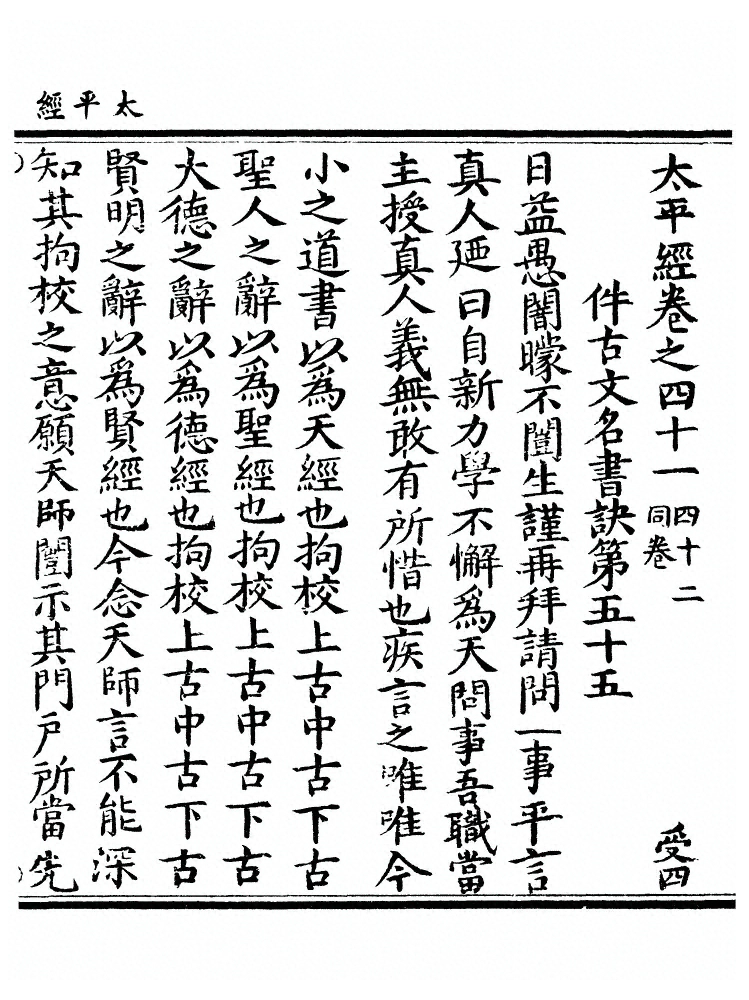 太平經
太平經卷之四十一 四十二同卷 受四
件古文名書訣第五十五
日益愚闇曚不闓生謹再拜請問一事平言
真人廼曰自新力學不懈爲天問事吾職當
主授真人義無敢有所惜也疾言之唯唯今
小之道書以爲天經也拘校上古中古下古
聖人之辭以爲聖經也拘校上古中古下古
大德之辭以爲德經也拘校上古中古下古
賢明之辭以爲賢經也今念天師言不能深
知其拘校之意願天師闓示其門户所當先